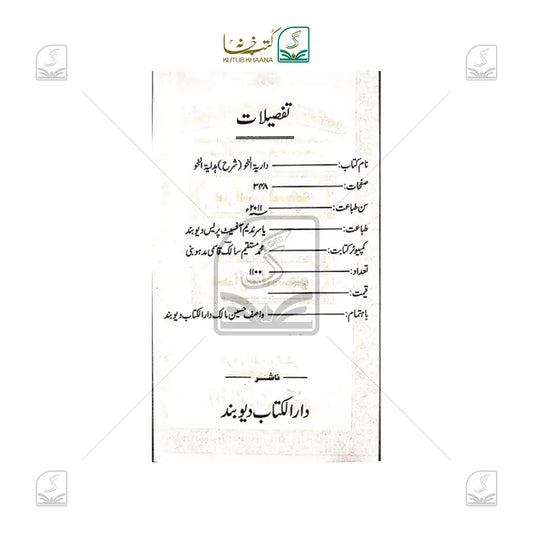 کتب خانہ
KUTUB KHAANA
تفصیلات
نام کتاب: درایۃ النحو (شرح) ہدایۃ النحو
صفحات: ۳۴۸
سن طباعت: ۲۰۱۱ء
طباعت: یاسر ندیم آفسیٹ پریس دیوبند
کمپیوٹر کتابت: محمد مستقیم سالک قاسمی مدھوبنی
تعداد: ۱۱۰۰
قیمت:
باہتمام: واصف حسین مالک دارالکتاب دیوبند
ناشر
دارالکتاب دیوبند